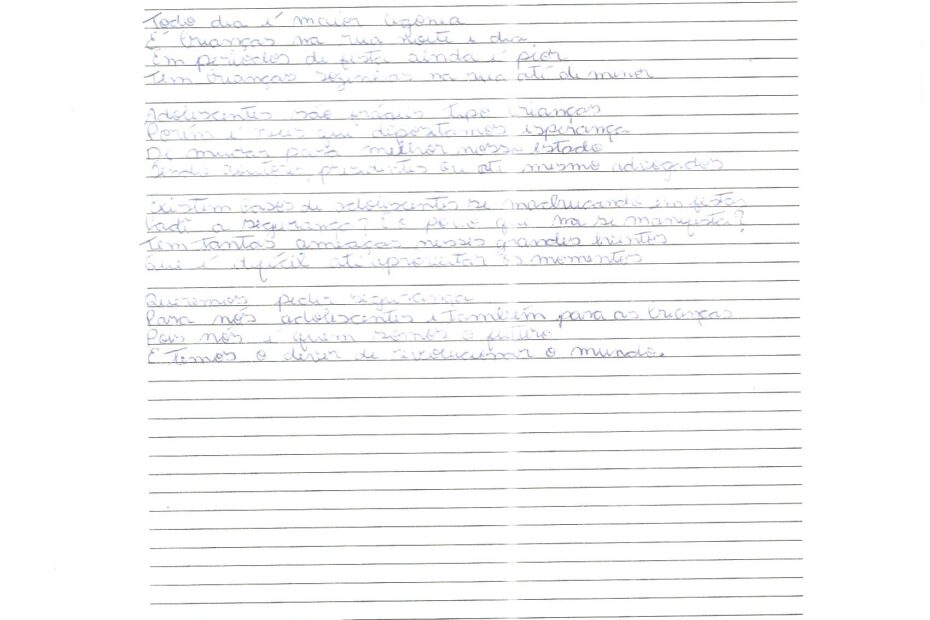 Todo dia é maior agonia
É crianças na rua noite e dia
Em períodos de festa ainda é pior
Tem crianças sozinhas na rua até de menor
Adolescentes são frágeis tipo crianças
Porém é neus que depositamos esperança
De mudar para melhor nosso estado
Sendo presidentes ou até mesmo advogados
Existem casos de adolescentes se machucando em festas
Cadê a segurança? E o povo que não se manifesta?
Tem tantas ameaças nesses grandes eventos
Que é difícil até aproveitar os momentos
Queremos pedir segurança
Para nós adolescentes e também para as crianças
Pois nós é quem somos o futuro
E temos o dever de revolucionar o mundo.